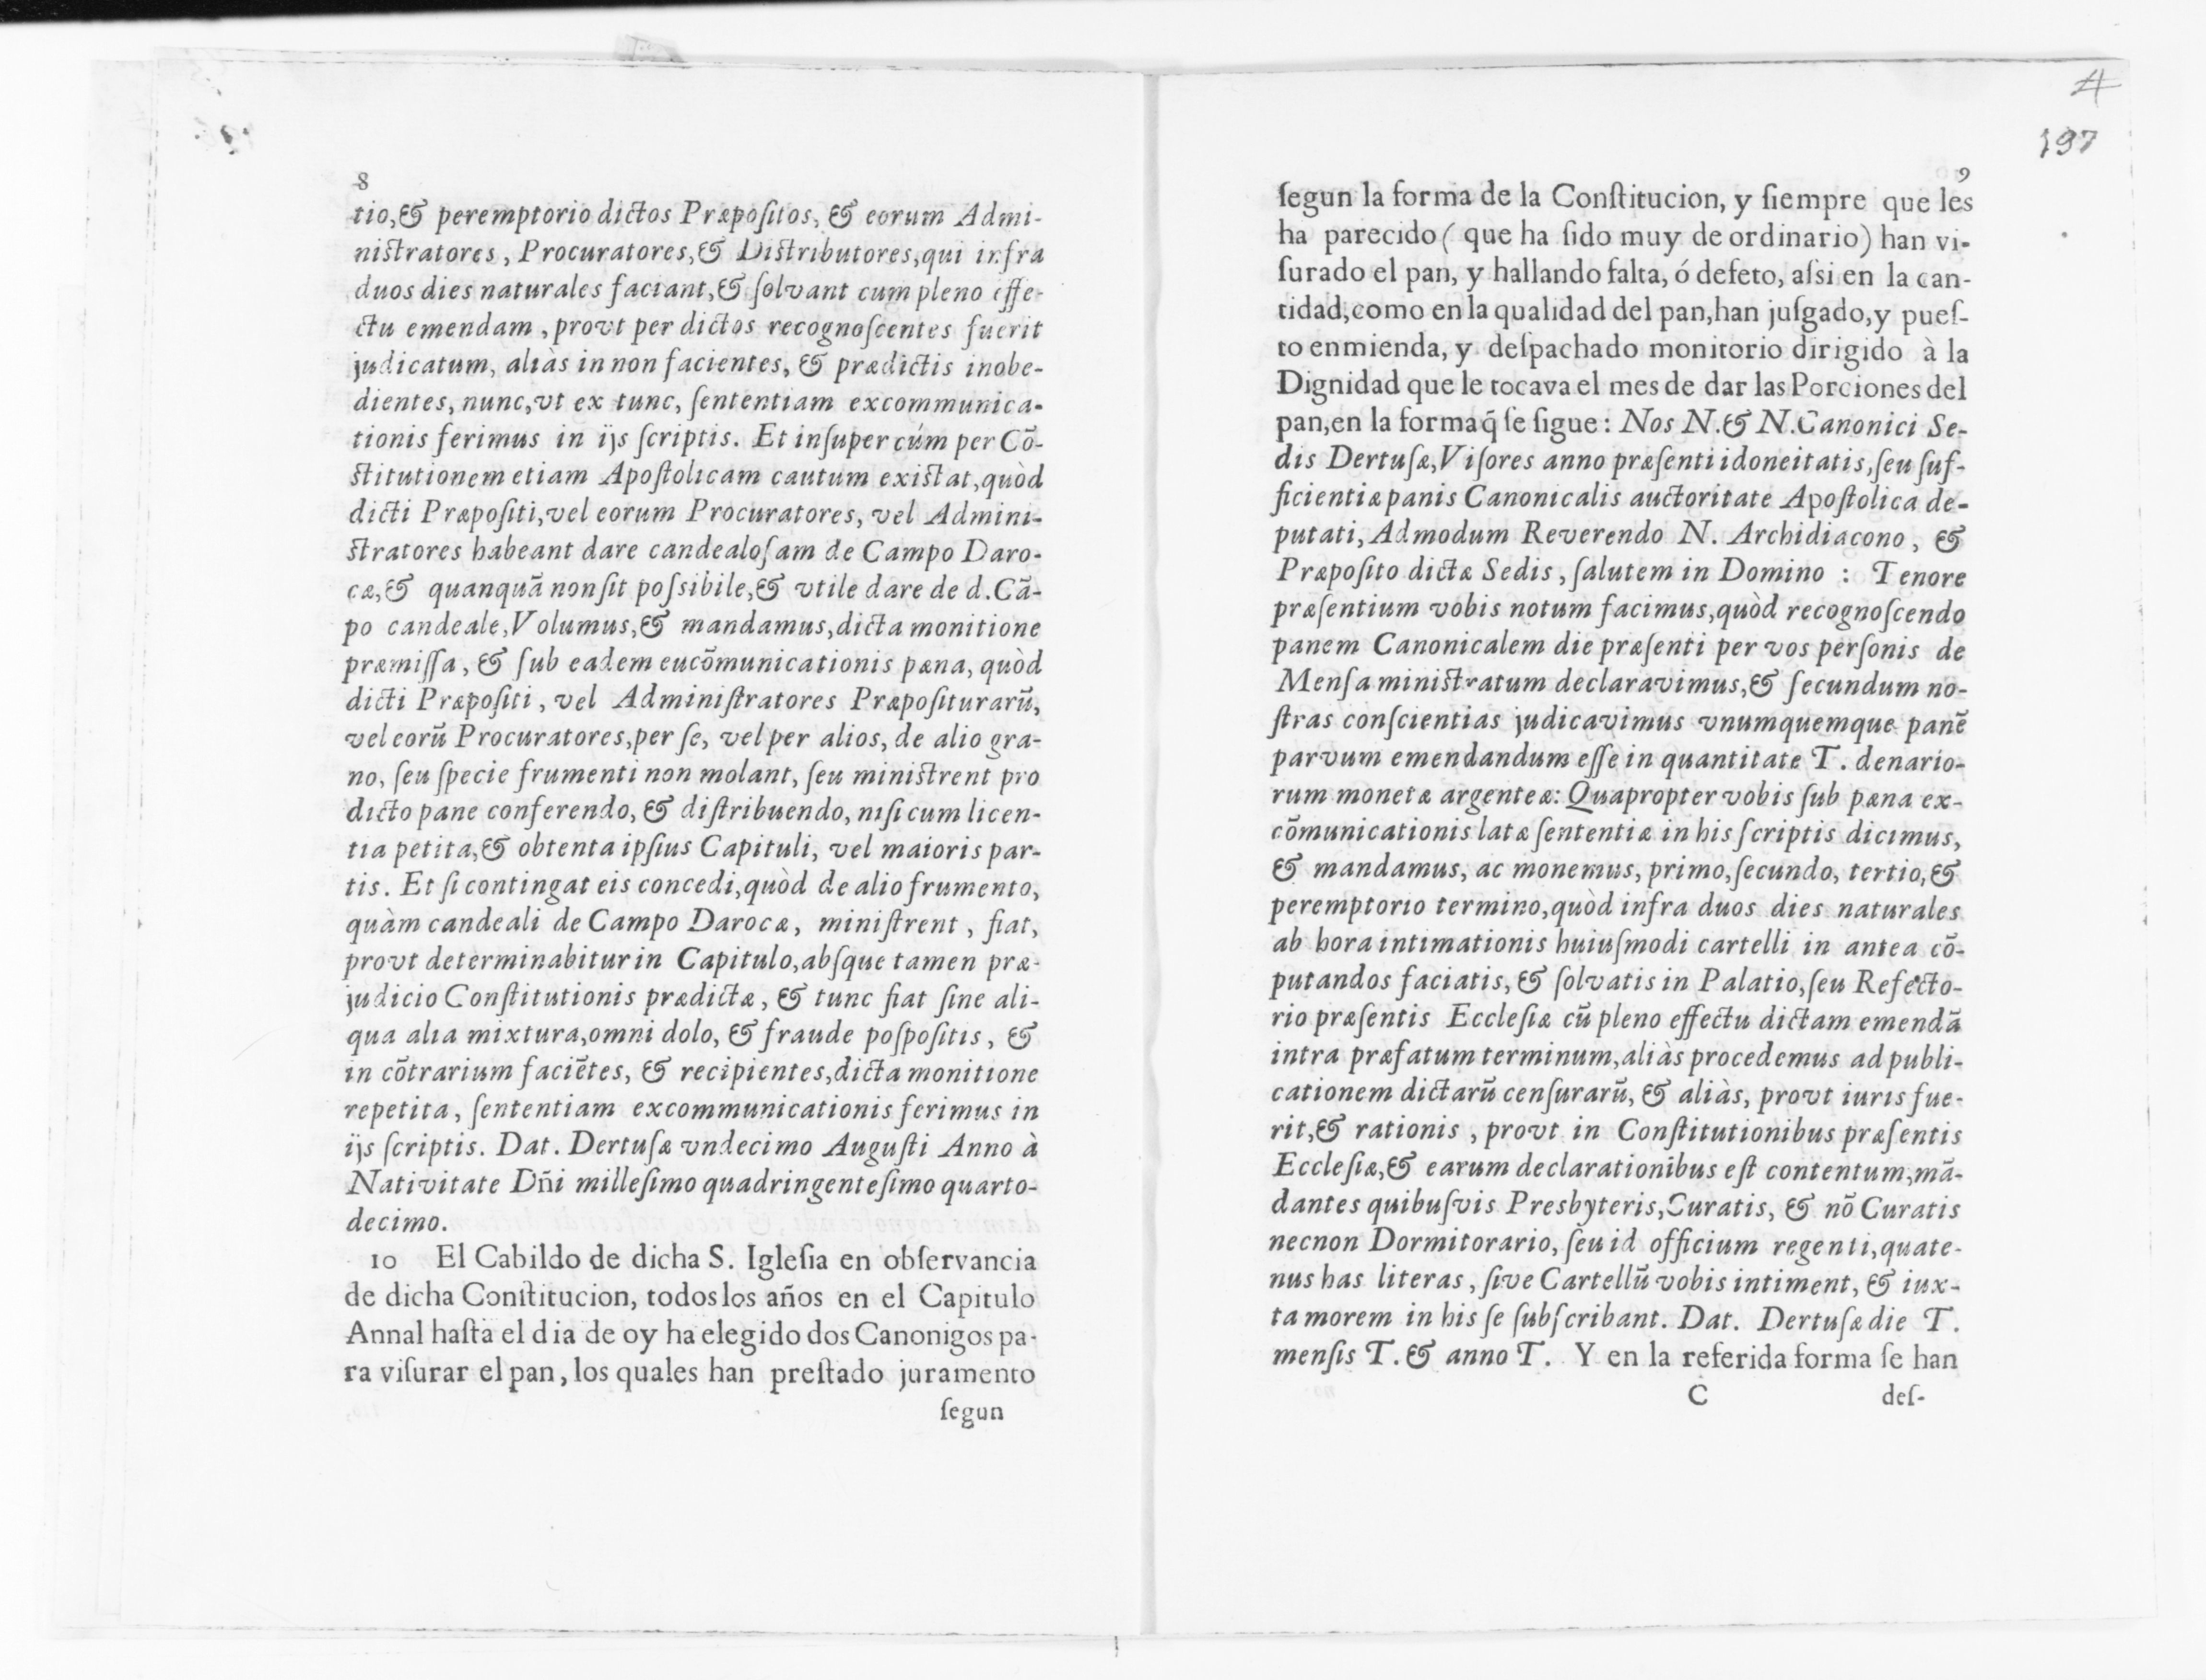 8
tio,& peremptorio dictos Præpoſitos, & eorum Admi-
niſtratores, Procuratores,& Diſtributores,qui infra
duos dies naturales faciant,& ſolvant cum pleno effe-
ctu emendam, provt per dictos recognoſcentes fuerit
judicatum, aliàs in non facientes, & prædictis inobe-
dientes, nunc,vt ex tunc, ſententiam excommunica-
tionis ferimus in ijs ſcriptis. Et inſuper cúm per Cõ-
ſtitutionem etiam Apoſtolicam cautum exiſtat,quòd
dicti Præpoſiti,vel eorum Procuratores, vel Admini-
ſtratores habeant dare candealoſam de Campo Daro-
cæ,& quanquã non ſit poſsibile,& vtile dare de d.Cã-
po candeale,Volumus,& mandamus,dicta monitione
præmiſſa, & ſub eadem eucõmunicationis pæna, quòd
dicti Præpoſiti, vel Adminiſtratores Præpoſiturarũ,
vel eorũ Procuratores,per ſe, vel per alios, de alio gra-
no, ſeu ſpecie frumenti non molant, ſeu miniſtrent pro
dicto pane conferendo, & diſtribuendo, niſi cum licen-
tia petita,& obtenta ipſius Capituli, vel maioris par-
tis. Et ſi contingat eis concedi,quòd de alio frumento,
quàm candeali de Campo Darocæ, miniſtrent, fiat,
provt determinabitur in Capitulo,abſque tamen præ-
judicio Conſtitutionis prædictæ, & tunc fiat ſine ali-
qua alia mixtura,omni dolo, & fraude poſpoſitis, &
in cõtrarium faciẽtes, & recipientes,dicta monitione
repetita, ſententiam excommunicationis ferimus in
ijs ſcriptis. Dat. Dertuſæ vndecimo Auguſti Anno à
Nativitate Dñi milleſimo quadringenteſimo quarto-
decimo.
10 El Cabildo de dicha S. Igleſia en obſervancia
de dicha Conſtitucion, todos los años en el Capitulo
Annal haſta el dia de oy ha elegido dos Canonigos pa-
ra viſurar el pan, los quales han preſtado juramento
ſegun
4
197
9
ſegun la forma de la Conſtitucion, y ſiempre que les
ha parecido ( que ha ſido muy de ordinario) han vi-
ſurado el pan, y hallando falta, ó defeto, aſsi en la can-
tidad,como en la qualidad del pan,han juſgado,y pueſ-
to enmienda, y deſpachado monitorio dirigido à la
Dignidad que le tocava el mes de dar las Porciones del
pan,en la forma q̃ ſe ſigue: Nos N.& N.Canonici Se-
dis Dertuſæ,Viſores anno præſenti idoneitatis,ſeu ſuf-
ficientiæ panis Canonicalis auctoritate Apoſtolica de-
putati, Admodum Reverendo N. Archidiacono, &
Præpoſito dictæ Sedis, ſalutem in Domino : Tenore
præſentium vobis notum facimus,quòd recognoſcendo
panem Canonicalem die præſenti per vos perſonis de
Menſa miniſtratum declaravimus,& ſecundum no-
ſtras conſcientias judicavimus vnumquemque panẽ
parvum emendandum eſſe in quantitate T. denario-
rum monetæ argenteæ: Quapropter vobis ſub pæna ex-
cõmunicationis latæ ſententiæ in his ſcriptis dicimus,
& mandamus, ac monemus, primo,ſecundo, tertio,&
peremptorio termino,quòd infra duos dies naturales
ab hora intimationis huiuſmodi cartelli in antea cõ-
putandos faciatis, & ſolvatis in Palatio,ſeu Refecto-
rio præſentis Eccleſiæ cũ pleno effectu dictam emendã
intra præfatum terminum,aliàs procedemus ad publi-
cationem dictarũ cenſurarũ, & aliàs, provt iuris fue-
rit,& rationis, provt in Conſtitutionibus præſentis
Eccleſiæ,& earum declarationibus eſt contentum,mã-
dantes quibuſvis Presbyteris,Curatis, & nõ Curatis
necnon Dormitorario, ſeu id officium regenti,quate-
nus has literas, ſive Cartellũ vobis intiment, & iux-
ta morem in his ſe ſubſcribant. Dat. Dertuſæ die T.
menſis T.& anno T. Y en la referida forma ſe han
C
deſ-